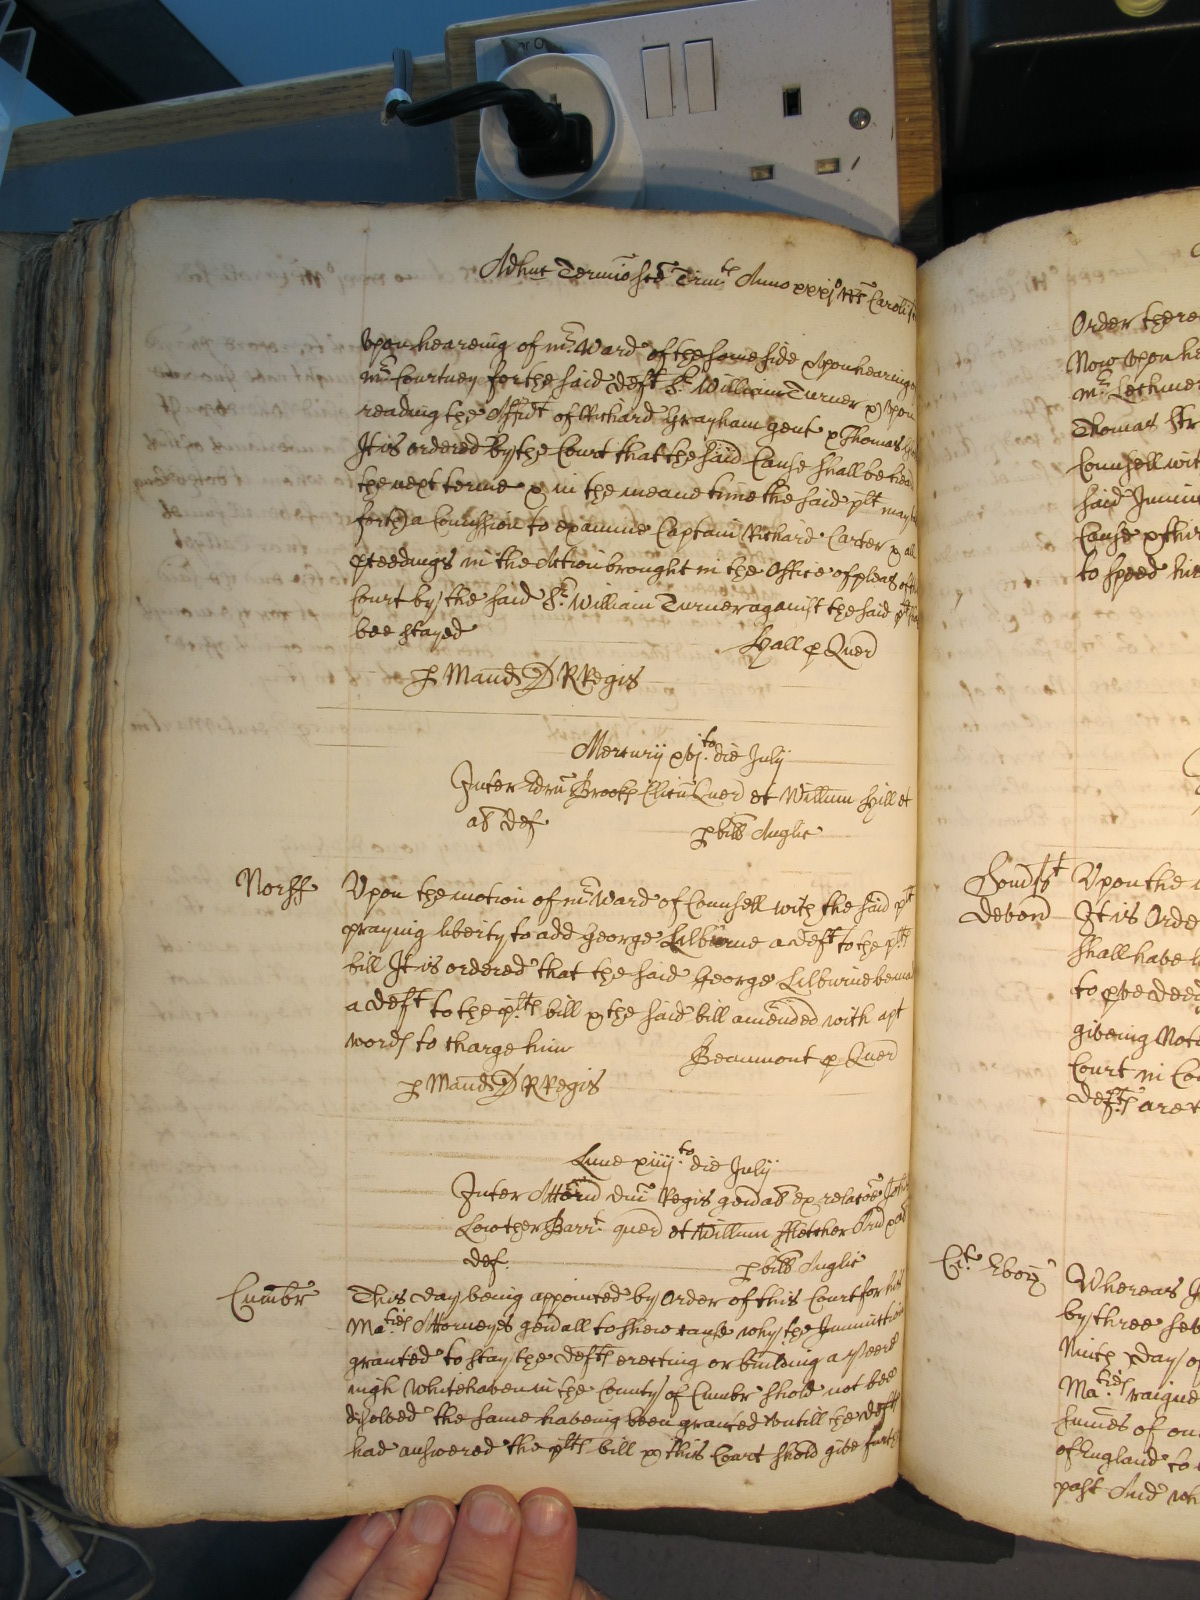 Adhuc Termio Sce Trin: te Anno xxxj o RRs Caroli
Upon heareing of mr. Ward of the same side & upon heareing
mr. Courtney for the said deft Sr. William Turner & upon
reading the Affidt of Richard Grayham gent & Thomas
It is ordered by the Court that the said Cause shall be heard
the next terme & in the meane time the said plt may
forth a Comission to examine Captain Richard Carter & all
pceedings in the Action brought in the Office of pleas of
Court by the said Sr. William Turner against the said plt
bee stayed
Hall p Quer
p Mand D R Regis
Mercurij xvj.to die July
Inter Brooks Quer et William Hill et
als Def
p bill Anglic
Norff
Upon the motion of mr. Ward of Counsell with the said plt
praying liberty to add George Lilburne a deft to the plts
bill It is ordered that the said George Lilburne be
a deft to the plts bill & the said bill amended with apt
words to charge him
Beaumont p Quer
p Mand D R Regis
Lune xiiij.to die July
Inter Attorn Dni Regis genal ex relacoe John
Lowther Barrt quer et William Fletcher
def.
p bill Anglic
Cumbr
This day being appointed by Order of this Court for his
Ma:ties Attorneyes genall to shew cause why the Iniunction
granted to stay the defts erecting or building a peere
nigh Whitehaven in the County of Cumbr shold not bee
disolved the same haveing been granted untill the defts
had answered the plts bill & this Court shold give
Order there
Now upon he
mr. Lechmere
Thomas Str
Counsell wit
said Iniun
Cause & thi
to speed his
Devon
Upon the
It is Orde
shall have
to pve deed
giveing Noti
Court in Co
Defts are
Cit. Ebor
Whereas
by three sev
Ninth day of
Ma:ties raigne
sumes of
of England to
past And wh